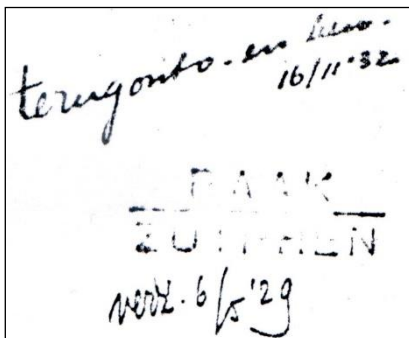 terugontv. en
16/11-32
BAAK
ZUTPHEN
verz. 6/5 '29